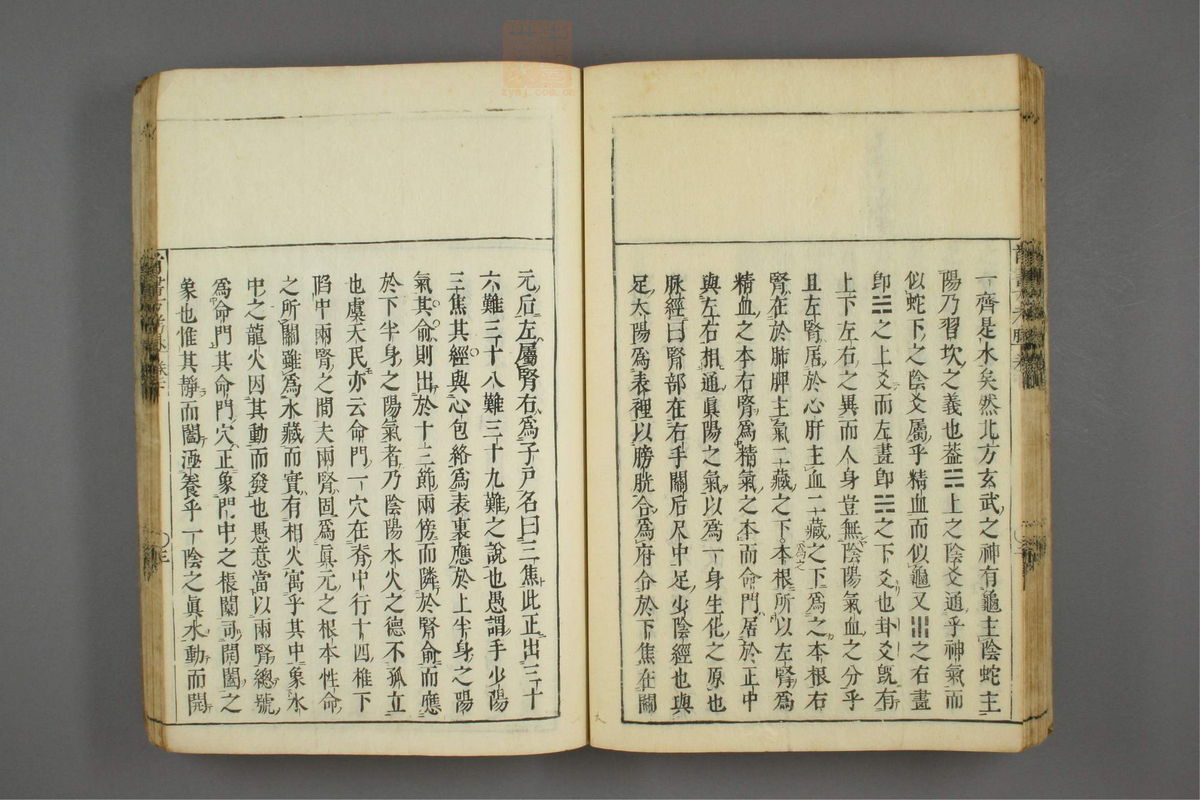 一齊是水矣然北方玄武之神有龜主陰蛇主
陽乃習坎之義也蓋☵上之陰爻通乎神氣而
似蛇下之陰爻屬乎精血而似龜又☵之右畫
卽☵之上爻而左畫卽☵之下爻也卦爻既有
上下左右之異而人身豈無陰陽氣血之分乎
且左腎居於心肝主血二藏之下爲之本根右
腎在於肺脾主氣二藏之下本根所以左腎爲
精血之本右腎爲精氣之本而命門居於正中
與左右相通眞陽之氣以爲一身生化之原也
脉經曰腎部在右手關后尺中足少陰經也與
足太陽爲表裡以膀胱合爲府合於下焦在關
元后左屬腎右爲子戶名曰三焦此正出三十
六難三十八難三十九難之說也愚謂手少陽
三焦其經與心包絡爲表裏應於上半身之陽
氣其俞則出於十三節兩傍而隣於腎俞而應
於下半身之陽氣者乃陰陽水火之德不孤立
也虞天民亦云命門一穴在脊中行十四椎下
陷中兩腎之間夫兩腎固爲眞元之根本性命
之所關雖爲水藏而實有相火寓乎其中象水
中之龍火因其動而發也愚意當以兩腎總號
爲命門其命門穴正象門中之棖闑司開闔之
象也惟其靜而闔涵養乎一陰之眞水動而開
zysj.com.cn